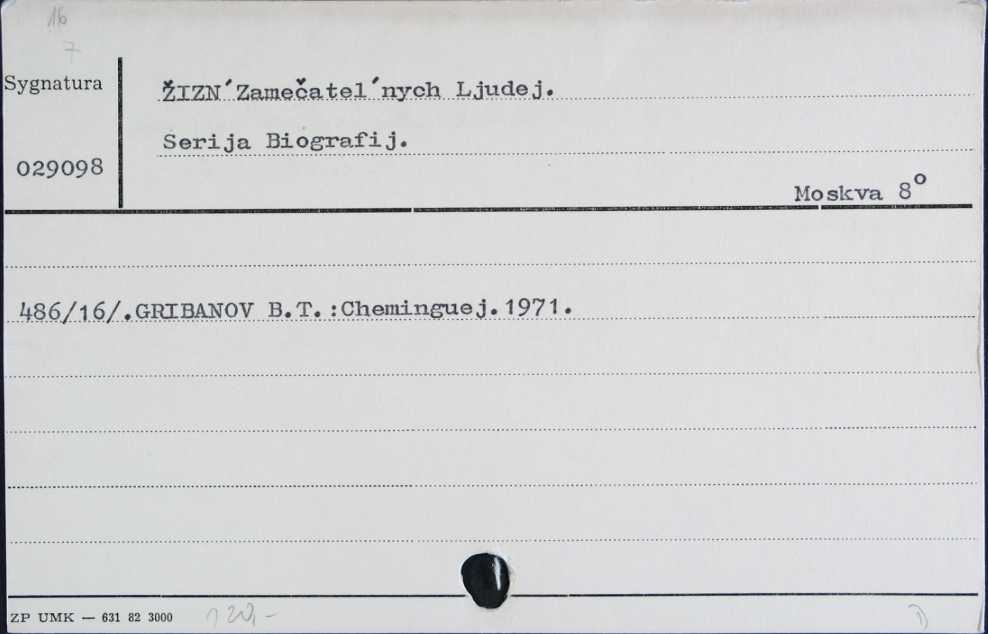 16
7
Sygnatura
ŽIZN´Zamečatel´nych Ljudej.
Serija Biografij.
029098
Moskva 8°
486/16/.GRIBANOV B.T.:Cheminguej.1971.
ZP UMK — 631 82 3000